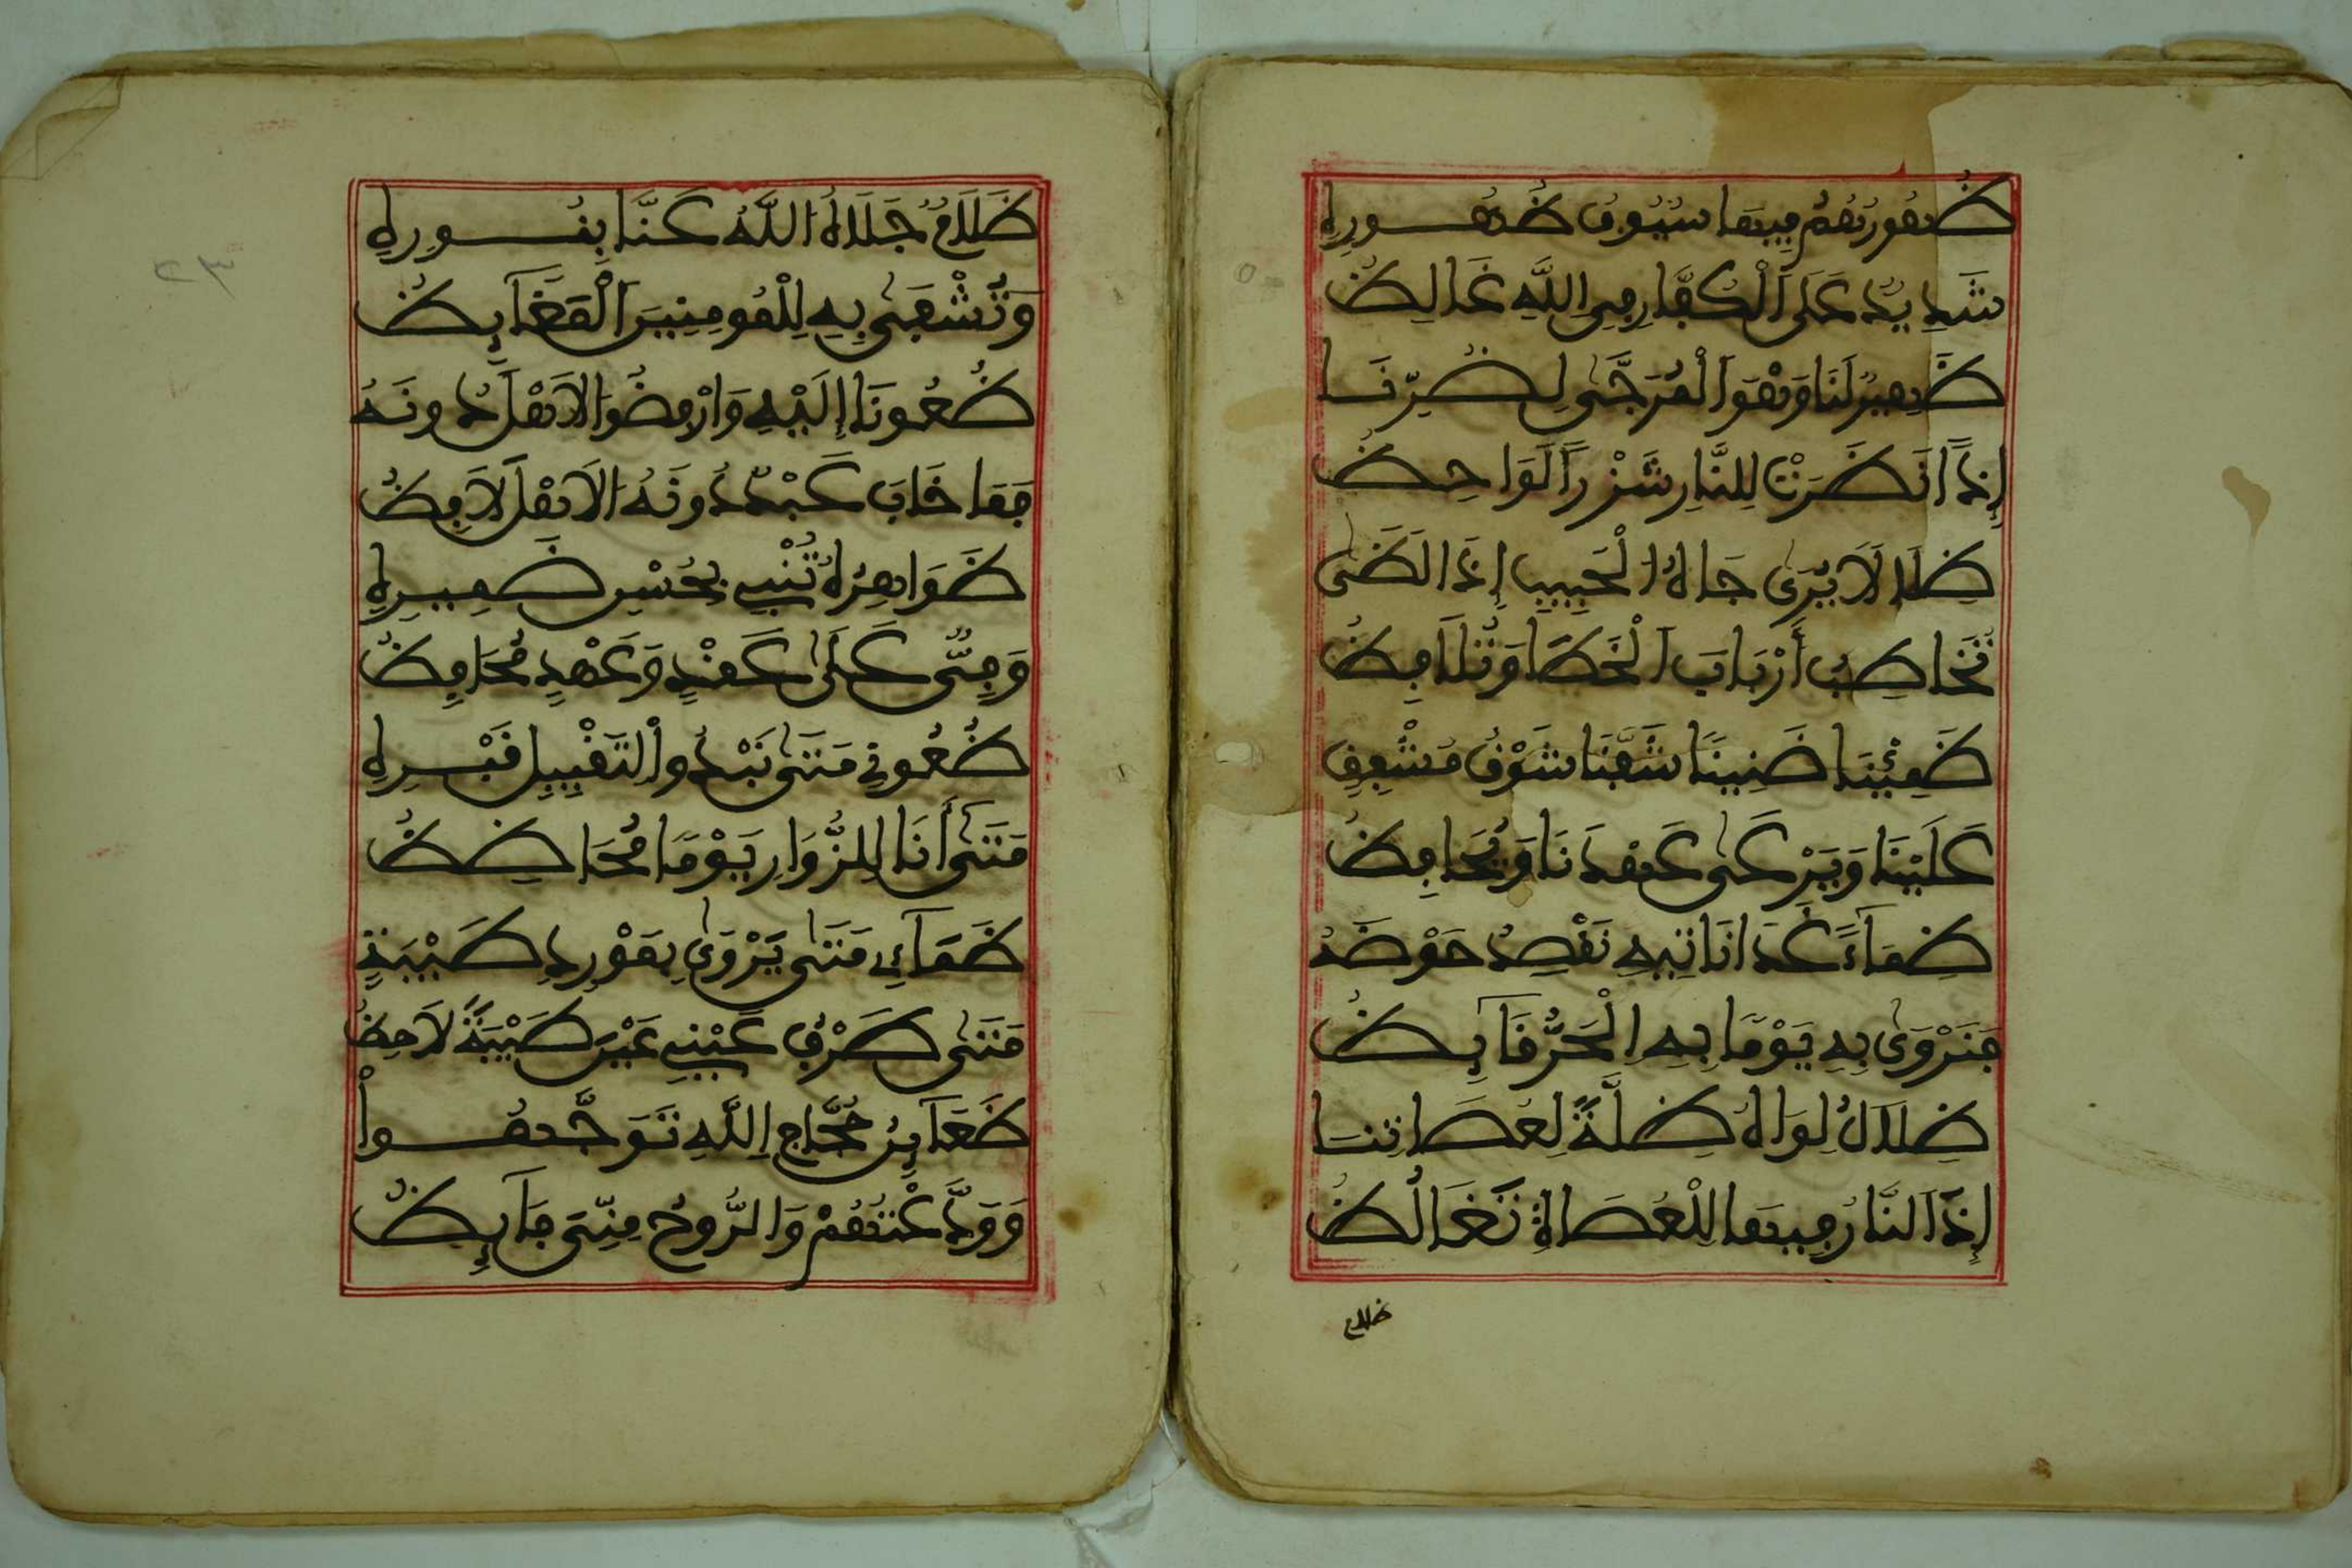 ظُهُورُهُمُ فِيهَا سُيُوفُ ظُهُورِهِ
شَدِيدٌ عَلَى الْكُفَّارِ فِي اللَّهِ غَالِظُ
ظَهِيرٌ لَنَا وَهْوَ الْمُرَجَّى لِضُرِّنَا
إِذَا نَظَرَتْ لِلنَّارِ شَزْرًا لَوَاحِظُ
ظِلَالًا يُرَى جَاهُ الْحَبِيبِ إِذَا لَظَى
تُخَاطِبُ أَرْبَابَ الْخَطَا وَتُلَافِظُ
ظَمِئْنَا ظَنِينَا شَفَّنَا شَوْقُ مُشْفِقٍ
عَلَيْنَا وَيَرْعَى عَهْدَنَا وَيُحَافِظُ
ظِمَاءً غَدًا نَاتِيهِ نَقْصِدُ حَوْضَهُ
فَنَرْوَى بِهِ يَوْمًا بِهِ الْحَرُّ قَايِظُ
ظِلَالُ لِوَاهُ ظِلَّةٌ لِعُصَاتِنَا
إِذَا النَّارُ فِيهَا لِلْعُصَاةِ تَغَالُظُ
ظلام
٢٣
ظَلَامٌ جَلَاهُ اللَّهُ عَنَّا بِنُورِهِ
وَتُشْفَى بِهِ لِلْمُومِنِينَ الْمَغَايِظُ
ظُعُونَا إِلَيْهِ وَارْفِضُوا الَاهْلَ دُونَهُ
فَمَا خَابَ عَبْدٌ دُونَهُ الَاهْلَ لَافِظُ
ظَوَاهِرُهُ تُنْبِي بِحُسْنِ ضَمِيرِهِ
وَفِيٌّ عَلَى عَقْدٍ وَعَهْدٍ مُحَافِظُ
ظُعُونِي مَتَى تَبْدُوا لِتَقْبِيلِ قَبْرِهِ
مَتَى أَنَا لِلزُّوَارِ يَوْمًا مُحَاظِظُ
ظَمَائِي مَتَى يَرْوَى بِمَوْرِدِ طَيْبَةٍ
مَتَى طَرْفُ عَيْنِي عَيْنَ طَيْبَةَ لَاحِظُ
ظَعَايِنُ حُجَّاجِ اللَّهِ تَوَجَّهُوا
وَوَدَّعْتُهُمْ وَالرُّوحُ مِنِّيَ فَايِظُ